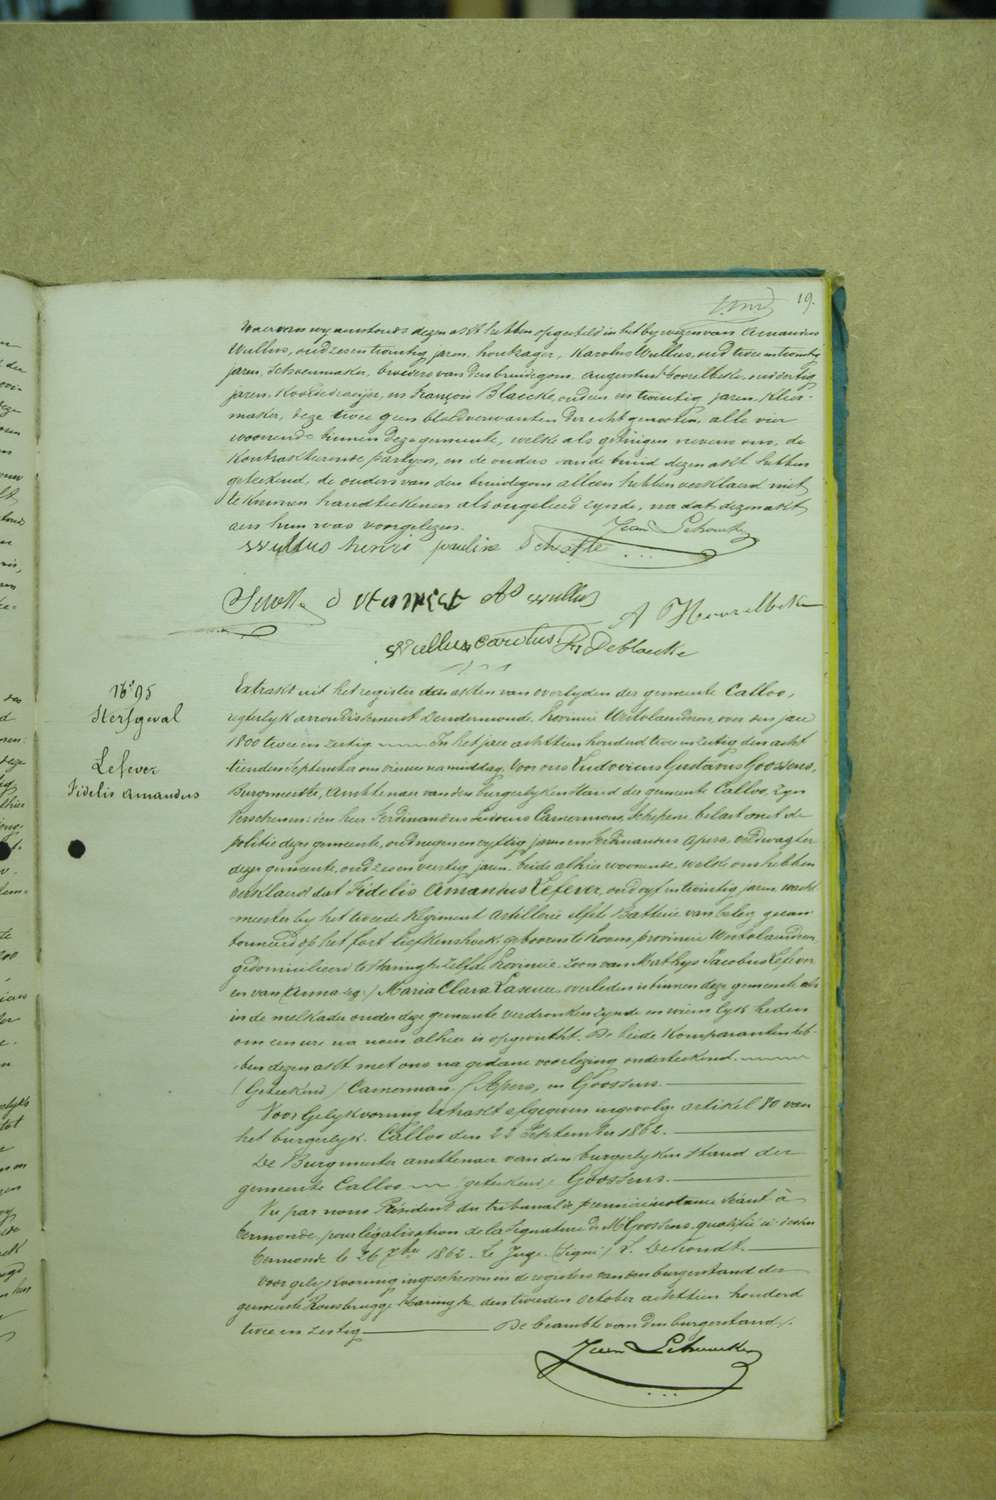 19.
Waervan wy aenstonds dezen akt hebben opgesteld in het bywezen van Amandus
Wullus, oud zesentwintig jaren, houtzager, Karolus Wullus, oud twee en twintig
jaren, schoenmaker, broeders van den bruidegom, Augustus Hoorelbeke, oud dertig
jaren, en François Blaecke, oud en twintig jaren, kleer-
maker, deze twee geen bloedverwanten der echtgenooten, alle vier
woonende binnen deze gemeente, welke als getuigen nevens ons, de
kontrakteerende partyen, en de ouders van de bruid dezen akt hebben
geteekend, de ouders van den bruidegom alleen hebben verklaerd niet
te kunnen handteekenen als ongeleerd zynde, na dat dezen akt
aen hun was voorgelezen.
Wullus henri pauline
Wullus
A Hoorelbeke
Wullus carolus Deblaecke
N° 95
Sterfgeval
Lefever
Fidelis Amandus
Extrakt uit het register der akten van overlyden der gemeente Calloo,
regterlyk arrondissement Dendermonde, Provincie Oostvlaendren, over den jare
1800 twee en zestig. In het jaer achttien honderd twee en zestig den acht
tienden September om vier uren namiddag, Voor ons Ludovicus Gustavus Goossens,
Burgmeester, Ambtenaer van den Burgerlyken stand der gemeente Calloo, zyn
verschenen: den heer Ferdinandus Ludovicus Camerman, Schepene belast met de
politie dezer gemeente, oud negen en vyftig jaren en Ferdinandus Apers, veldwagter
dezer gemeente, oud zes en veertig jaren, beide alhier woonende, welke ons hebben
verklaerd dat Fidelis Amandus Lefever, oud vyf en twintig jaren, wacht
meester by het tweede Regiment Artillerie elfde Batterie van beleg gekan
tonneerd op het fort Liefkenshoek, geboren te provincie Westvlaendren
gedomicilieerd te Haringhe zelfde Provincie, zoon van Mathys Jacobus Lefever
en van Anna Maria Clara overleden is binnen deze gemeente als
in de melkader onder deze gemeente verdronken zynde en wiens lyk heden
om een ure na noen alhier is opgevischt. De beide Komparanten heb-
ben dezen akt met ons na gedane voorlezing onderteekend.
(Geteekend) Camerman, F. Apers, en Goossens.
Voor Gelykvormig Extrakt afgegeven ingevolge artikel 80 van
het burgerlyk. Calloo den 22 September 1862.
De Burgmeester ambtenaer van den burgerlyken stand der
gemeente Calloo (geteekend) Goossens.
Vu par nous Président du tribunal de première instance séant à
Termonde, pour légalisation de la signature de Mr Goossens, qualifié ci-dessus
Termonde le 26 7bre 1862. Le Juge (Signé)
Voor gelykvormig ingeschreven in de registers van den burgerstand der
gemeente Rousbrugge Haringhe, den tweeden October achttien honderd
twee en zestig De beambte van den burgerstand.